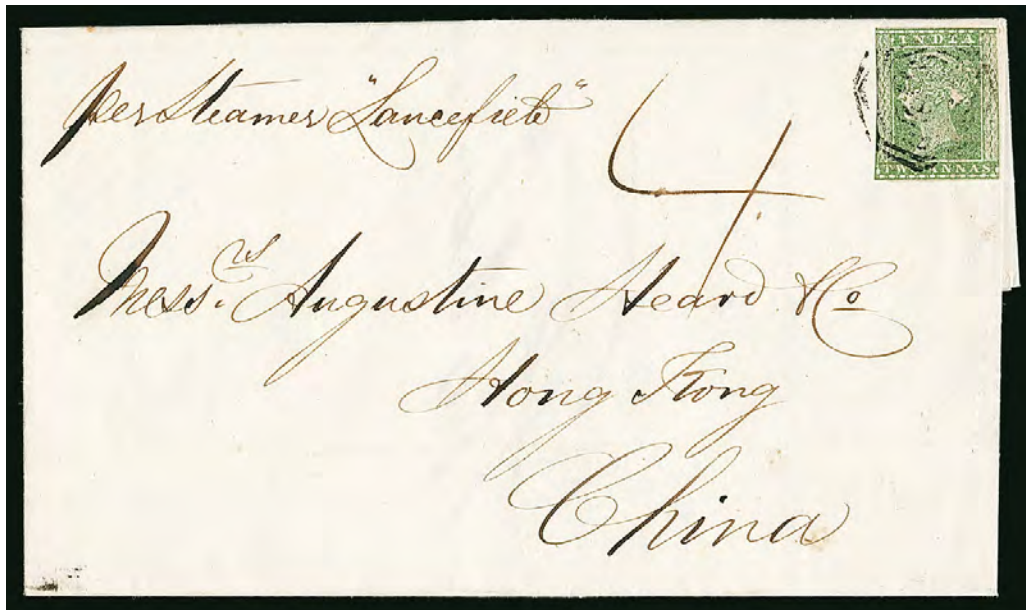 INDIA
TWO ANNAS
per Steamer "Lancefield"
4
Mess.rs Augustine Heard & Co
Hong Kong
China